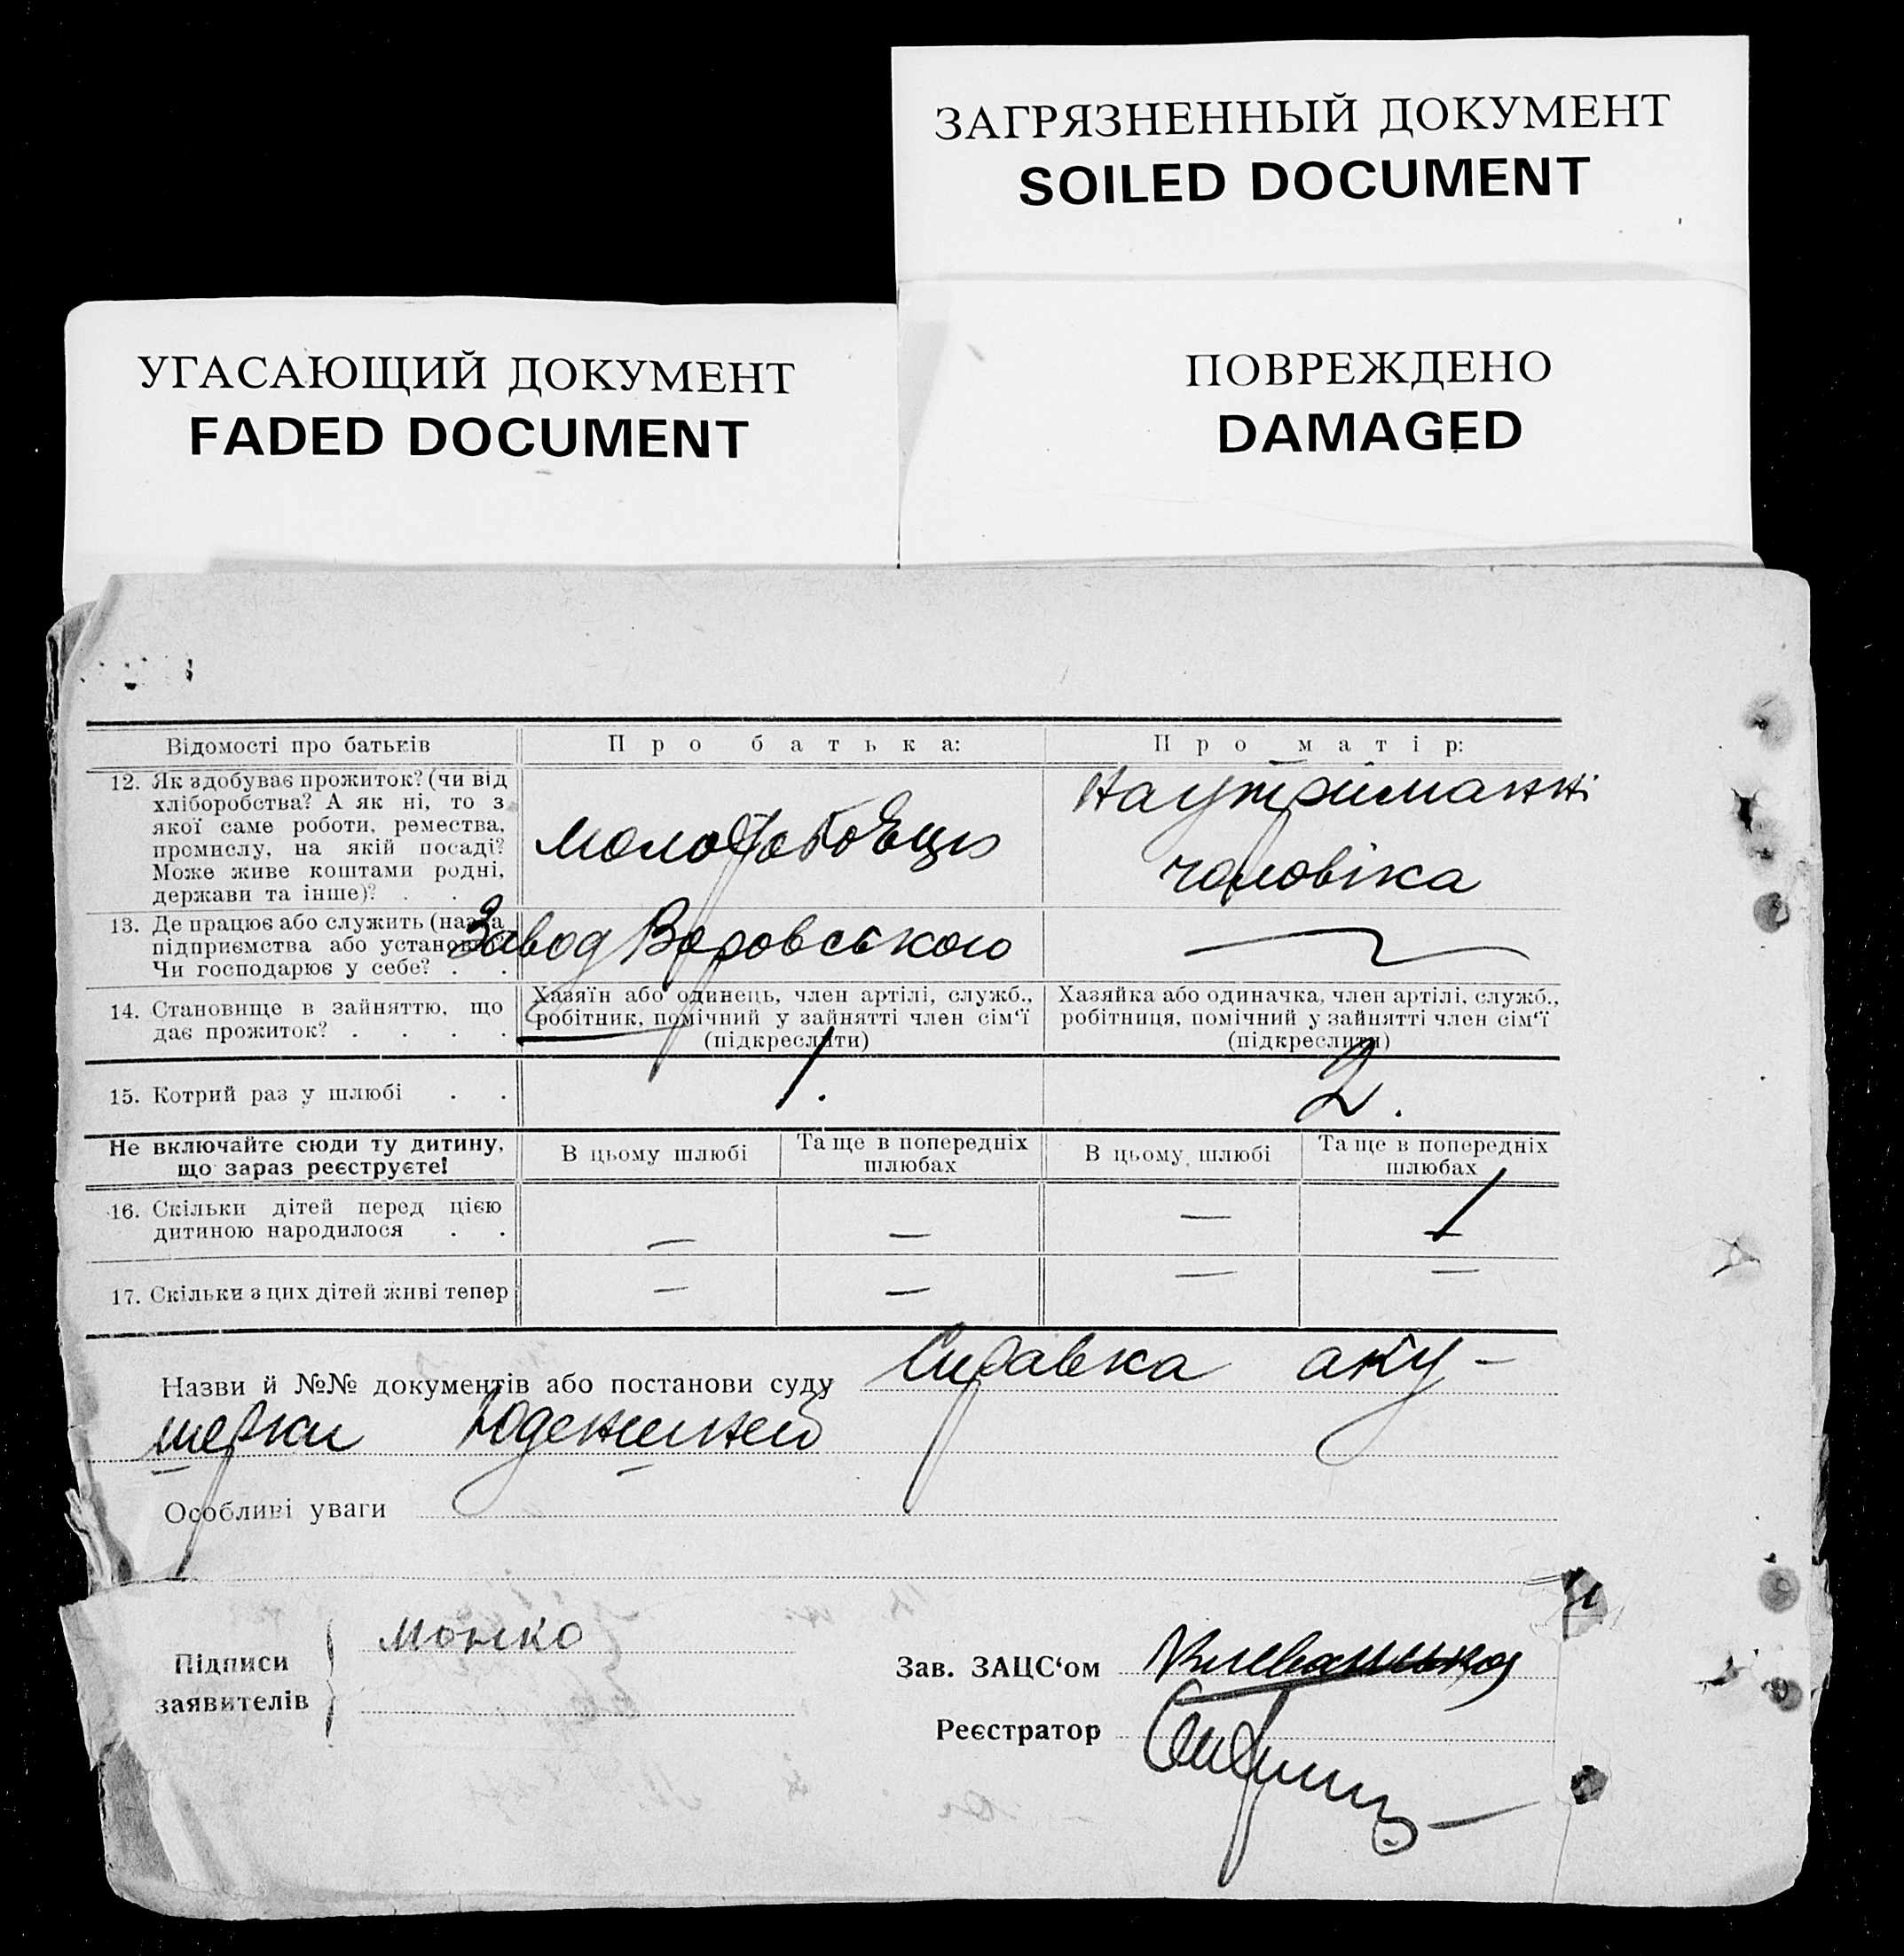 ЗАГРЯЗНЕННЫЙ ДОКУМЕНТ
SOILED DOCUMENT
УГАСАЮЩИЙ ДОКУМЕНТ
FADED DOCUMENT
ПОВРЕЖДЕНО
DAMAGED
Відомості про батьків
Про батька:
Про матір:
12. Як здобуває прожиток? (чи від
хліборобства? А як ні, то з
якої саме роботи, ремества,
промислу, на якій посаді?
Може живе коштами родні,
держави та інше)? . .
молотобоєць
На утриманні
чоловіка
13. Де працює або служить (назва
підприємства або установи)?
Чи господарює у себе? . .
Завод Воровського
—
14. Становище в зайняттю, що
дає прожиток? . . . .
Хазяїн або одинець, член артілі, служб.,
робітник, помічний у зайнятті член сім‘ї
(підкреслити)
Хазяйка або одиначка, член артілі, служб.,
робітниця, помічний у зайнятті член сім‘ї
(підкреслити)
15. Котрий раз у шлюбі . .
1.
2.
Не включайте сюди ту дитину,
що зараз реєструєте!
В цьому шлюбі
Та ще в попередніх
шлюбах
В цьому шлюбі
Та ще в попередніх
шлюбах
16. Скільки дітей перед цією
дитиною народилося . .
— — — 1
17. Скільки з цих дітей живі тепер
— — — —
Назви й №№ документів або постанови суду Справка аку-
шерки
Особливі уваги
Підписи
заявителів
Монко
Зав. ЗАЦС‘ом
Реєстратор